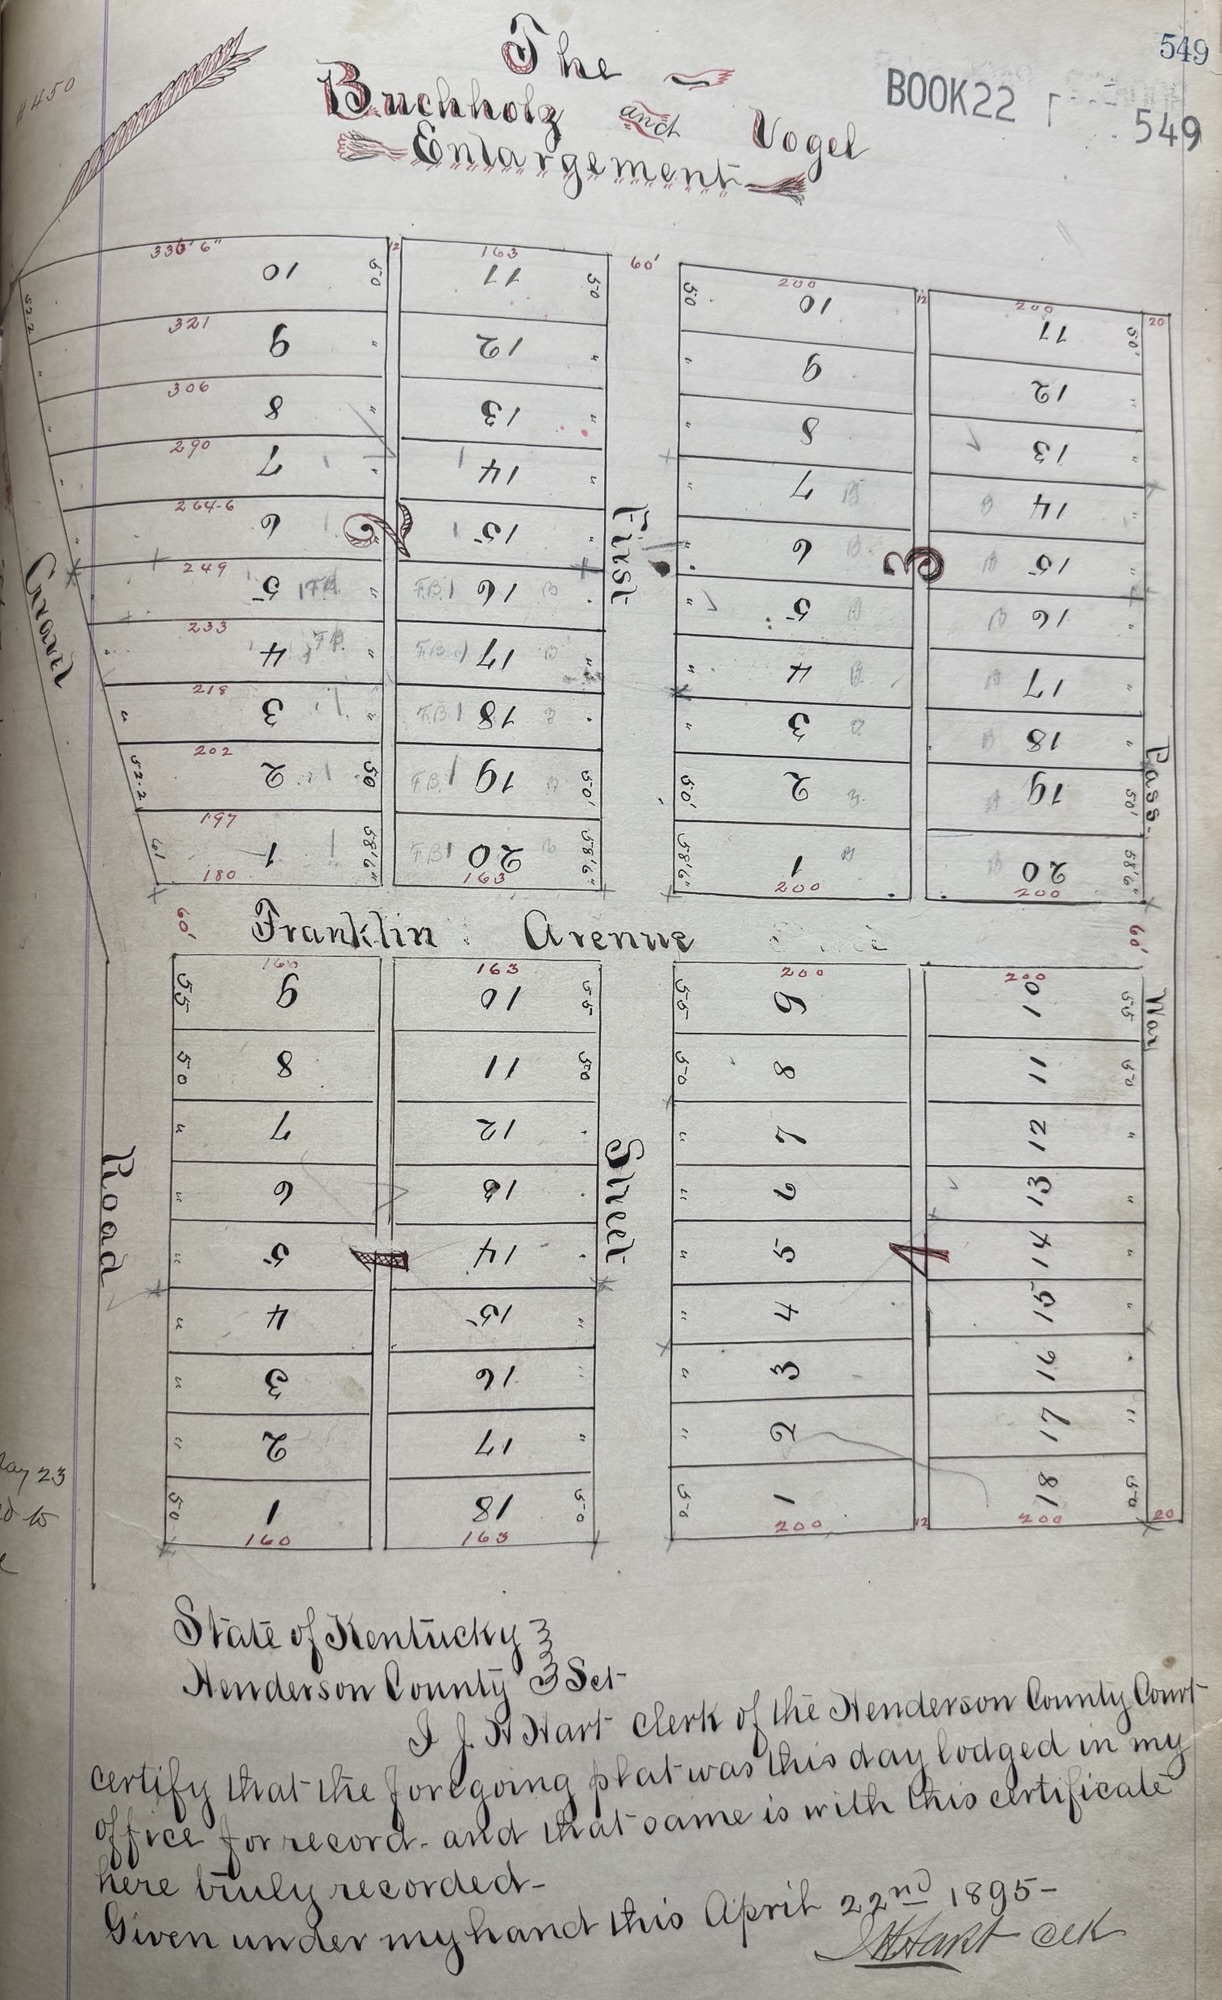 549
The
Buchholz and Vogel
Enlargement
BOOK 22
549
#450
336' 6" 10 50
163 11 50
60'
50 200 10
12
200 11 50'
20
52.2
321 9 "
12 "
" 9
12 "
306 8 "
13 "
" 8
13 "
290 7 "
14 "
" 7 B
B 14 "
264-6 6 "
15 "
" 6 B
B 15 "
2
3
First
Gravel
249 5 F.B. "
F.B. 16 B "
" 5 B
B 16 "
233 4 F.B. "
F.B. 17 B "
" 4 B
B 17 "
218 3 "
F.B. 18 B "
" 3 B
B 18 "
Pass
52.2 202 2 50
F.B. 19 B 50'
50' 2 B
B 19 50'
61 197 1 58'6"
F.B. 20 B 58'6"
58'6" 1 B
B 20 58'6"
180
163
200
200
60' Franklin Avenue 60'
160
163
200
200
55 9
10 55
55 9
10 55
Way
50 8
11 50
50 8
11 50
" 7
12 "
" 7
12 "
Road
Street
" 6
13 "
" 6
13 "
" 5
1
14 "
" 5
4
14 "
" 4
15 "
" 4
15 "
" 3
16 "
" 3
16 "
" 2
17 "
" 2
17 "
50 1
18 50
50 1
18 50
160
163
200
12
200
20
May 23
to
State of Kentucky }
Henderson County } Sct
I J. H Hart clerk of the Henderson County Court
certify that the foregoing plat was this day lodged in my
office for record. and that same is with this certificate
here truly recorded-
Given under my hand this April 22nd 1895-
J H Hart clk